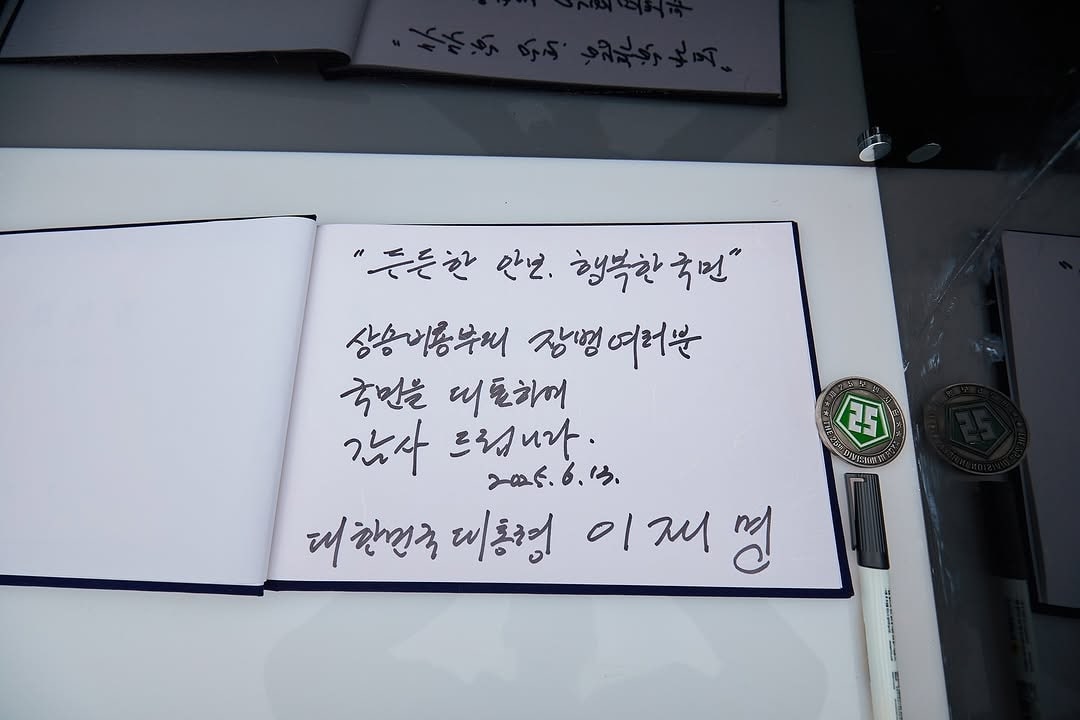 "든든한 안보. 행복한 국민"
상승비룡부대 장병여러분
국민을 대표하여
감사 드립니다.
2025.6.13.
대한민국 대통령 이재명
25
DIVISION